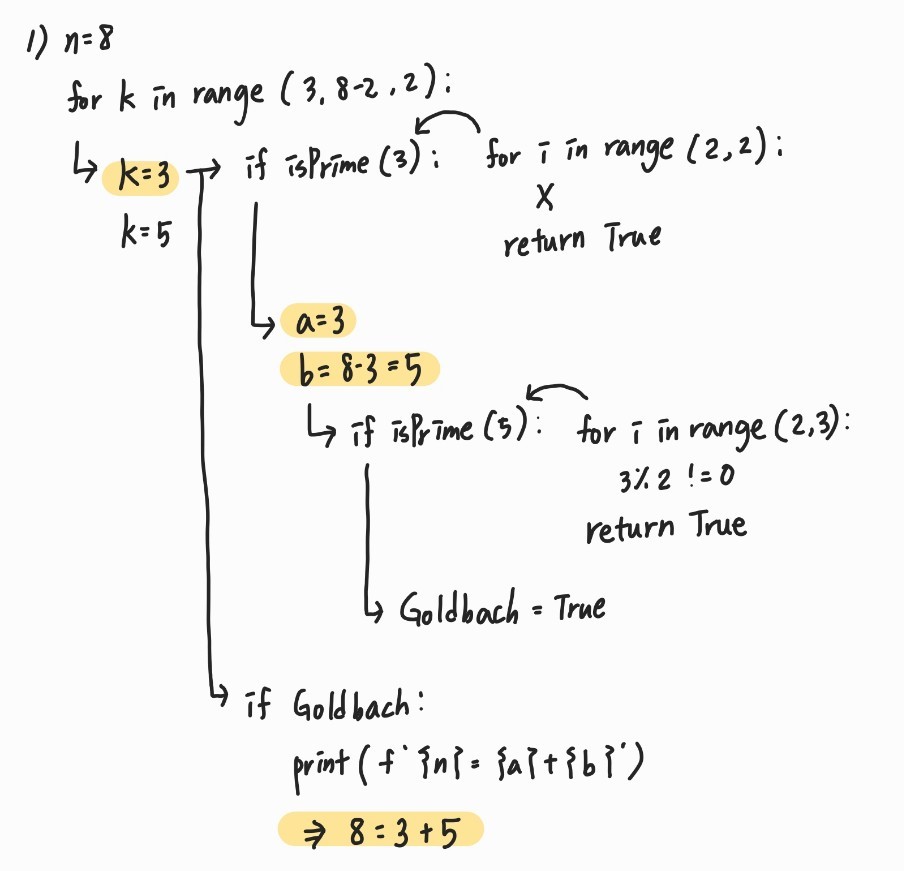 1) n=8
for k in range (3, 8-2, 2):
↳ k=3 → if isPrime(3): for i in range (2,2):
X
k=5
return True
↳ a=3
b= 8-3 = 5
↳ if isPrime(5): for i in range(2,3):
3%2 != 0
return True
↳ Goldbach = True
↳ if Goldbach:
print(f'{n} = {a}+{b}')
⇒ 8 = 3 + 5